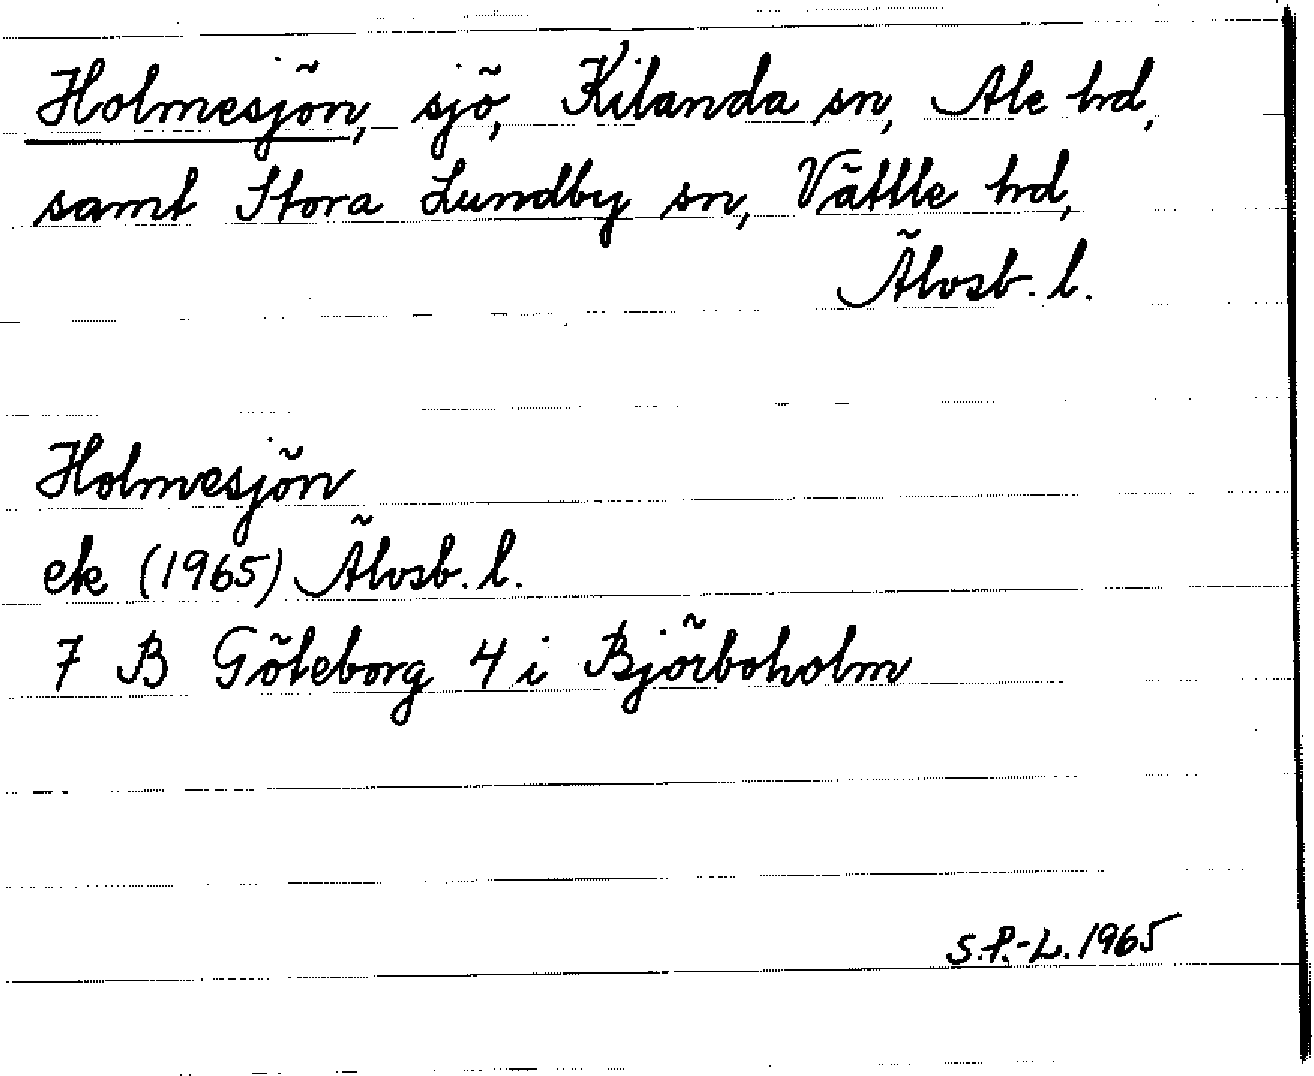 Holmesjön, sjö, Kilanda sn, Ale hd,
samt Stora Lundby sn, Vättle hd,
Älvsb. l.
Holmesjön
ek (1965) Älvsb. l.
7 B Göteborg 4 i Björboholm
S.P.-L. 1965